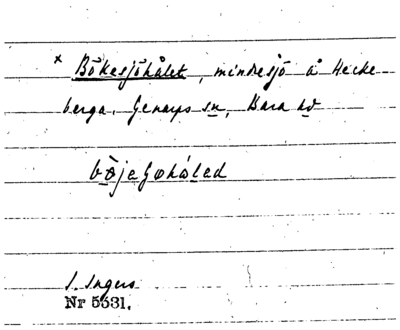 x Bökesjöhålet, mindre sjö å Hecke
berga. Genarps sn, Bara hd
I. Ingers
Nr 5531.